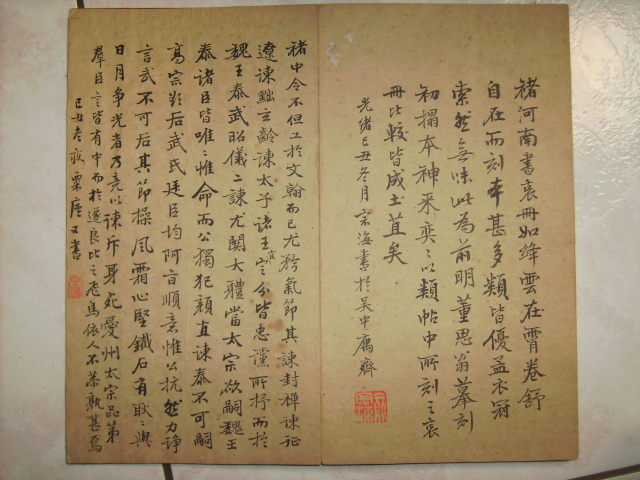 褚河南書哀冊如絳雲在霄卷舒
自在而刻本甚多類皆優孟衣冠
索然無味此為前明董思翁摹刻
初搨本神采奕〻以類帖中所刻之哀
冊比較皆成土苴矣
光緒己丑冬月宗海書於吳中寓齋
褚中令不但工於文翰而已尤矜氣節其諫封禪諫征
遼諫黜玄齡諫太子諸王宜定分皆忠讜所抒而於
魏王泰武昭儀二諫尤關大體當太宗欲嗣魏王
泰諸臣皆唯〻惟命而公獨犯顏直諫泰不可嗣
高宗將后武氏廷臣均阿旨順意惟公抗然力諍
言武不可后其節操風霜心堅鐵石有耿〻與
日月爭光者乃竟以諫斥身死愛州太宗品第
群臣言皆有中而於遂良比之飛鳥依人不慕孰甚焉
己丑冬夜粟庵又書